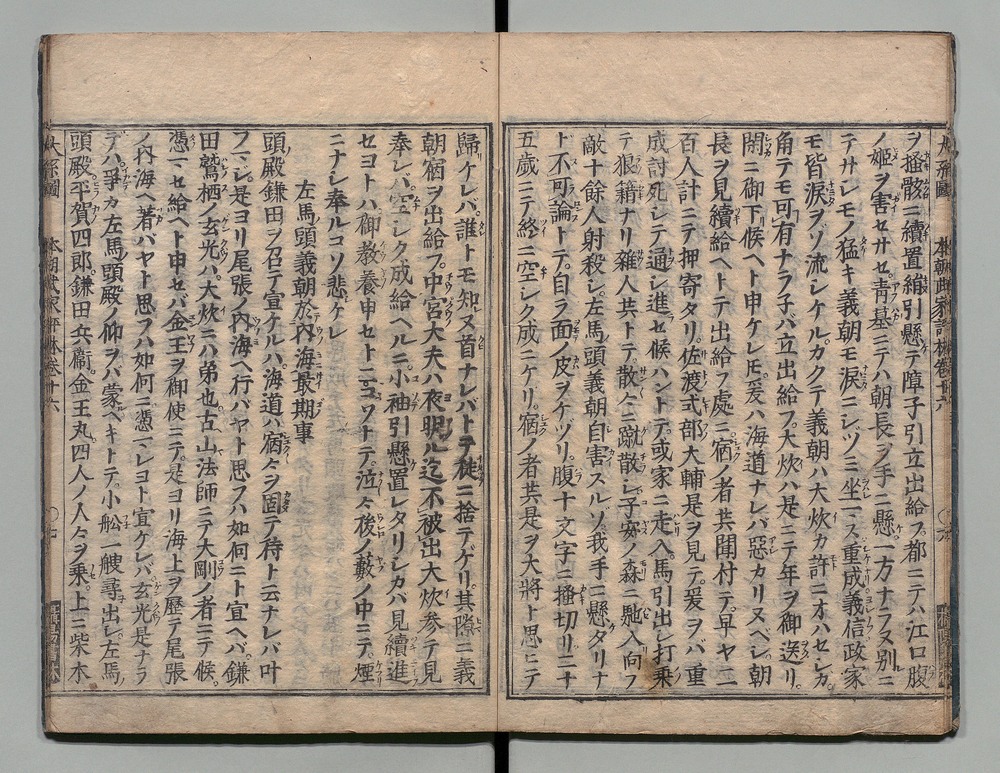 ヲ掻骸ニ續置絹引懸テ障子引立出給フ都ニテハ江口腹
ノ姫ヲ害セサセ青墓ニテハ朝長ヲ手ニ懸一方ナラヌ別ニ
テサレモノ猛キ義朝モ涙ニレツミ坐一ス重成義信政家
モ皆涙ヲソ流シケルカクテ義朝ハ大炊カ許ニオハセレカ
角テモ可有ナラ子バ立出給フ大炊ハ是ニテ年ヲ御送リ
閑ニ御下候ヘト申ケレモ爰ハ海道ナレバ惡カリヌベレ朝
長ヲ見續給ヘトテ出給フ處ニ宿ノ者共聞付テ早ヤ二三
百人計ニテ押寄タリ佐渡式部大輔是ヲ見テ爰ヲバ重
成討死レテ通レ進セ候ハントテ或家ニ走入馬引出レ打乗
テ狼籍ナリ雜人共トテ散〻ニ蹴散レ子安ノ森ニ馳入向フ
敵十餘人射殺レ左馬頭義朝自害スルソ我手ニ懸タリナ
ド不可論トテ自ラ面ノ皮ヲケヅリ腹十文字ニ掻切リ二十
五歳ニテ終ニ空レク成ニケリ宿ノ者共是ヲ大將ト思ヒテ
歸ケレバ誰トモ知ヌ首ナレバトテ徒ニ捨テゲリ其隙ニ義
朝宿ヲ出給フ中宮大夫ハ夜明ル迄不被出大炊参テ見
奉レバ空レク成給ヘルニ小袖引懸置レタリレカハ見續進
セヨトハ御教養申セトニコソトテ泣〻後ノ藪ノ中ニテ煙
ニナレ奉ルコソ悲ケレ
左馬頭義朝於内海最期事
頭殿鎌田ヲ召テ宣ケルハ海道ハ宿〻ヲ固テ待ト云ナレバ叶
フ一レ是ヨリ尾張ノ内海ヘ行バヤト思フハ如何ニト宣ヘバ鎌
田鷲栖ノ玄光ハ大炊ニハ弟也古山法師ニテ大剛ノ者ニテ候
憑一セ給ヘト申セバ金王ヲ御使ニテ是ヨリ海上ヲ歴テ尾張
ノ内海ヘ著バヤト思フハ如何ニ憑一レヨト宣ケレバ玄光是ナラ
デハ爭カ左馬頭殿ノ仰ヲハ蒙ベキトテ小舩一艘尋出レ左馬
頭殿平賀四郎鎌田兵衞金王丸四人ノ人〻ヲ乗上ニ柴木